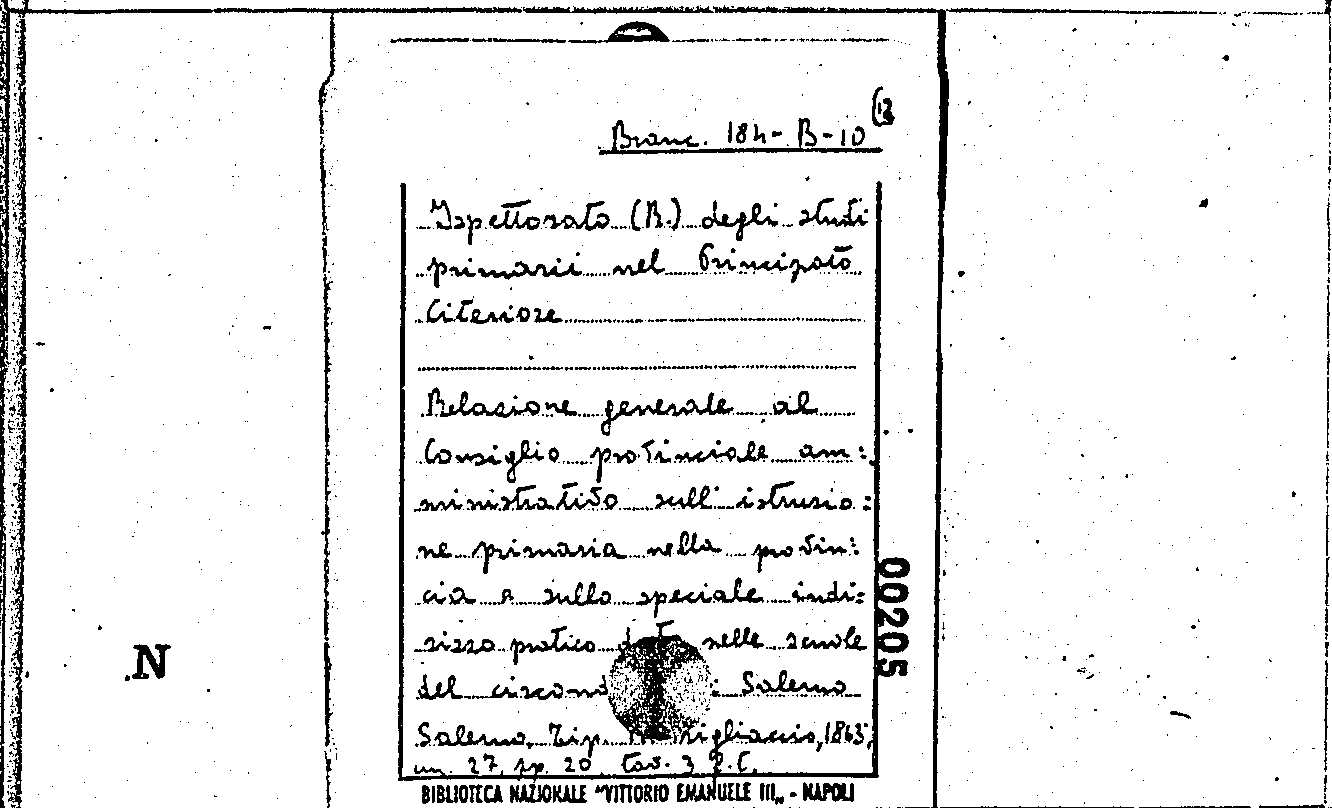 Branc. 184-B-10 (12
Ispettorato (R.) degli studi
primarii nel Principato
Citeriore
Relazione generale al
Consiglio provinciale am:
ministrativo sull'istruzio:
ne primaria nella provin:
cia e sullo speciale indi:
rizzo pratico nelle scuole
del Salerno
Salerno, Tip. 1863,
27, pp. 20 tav. 3 f.t.
BIBLIOTECA NAZIONALE "VITTORIO EMANUELE III„ - NAPOLI
00205
N